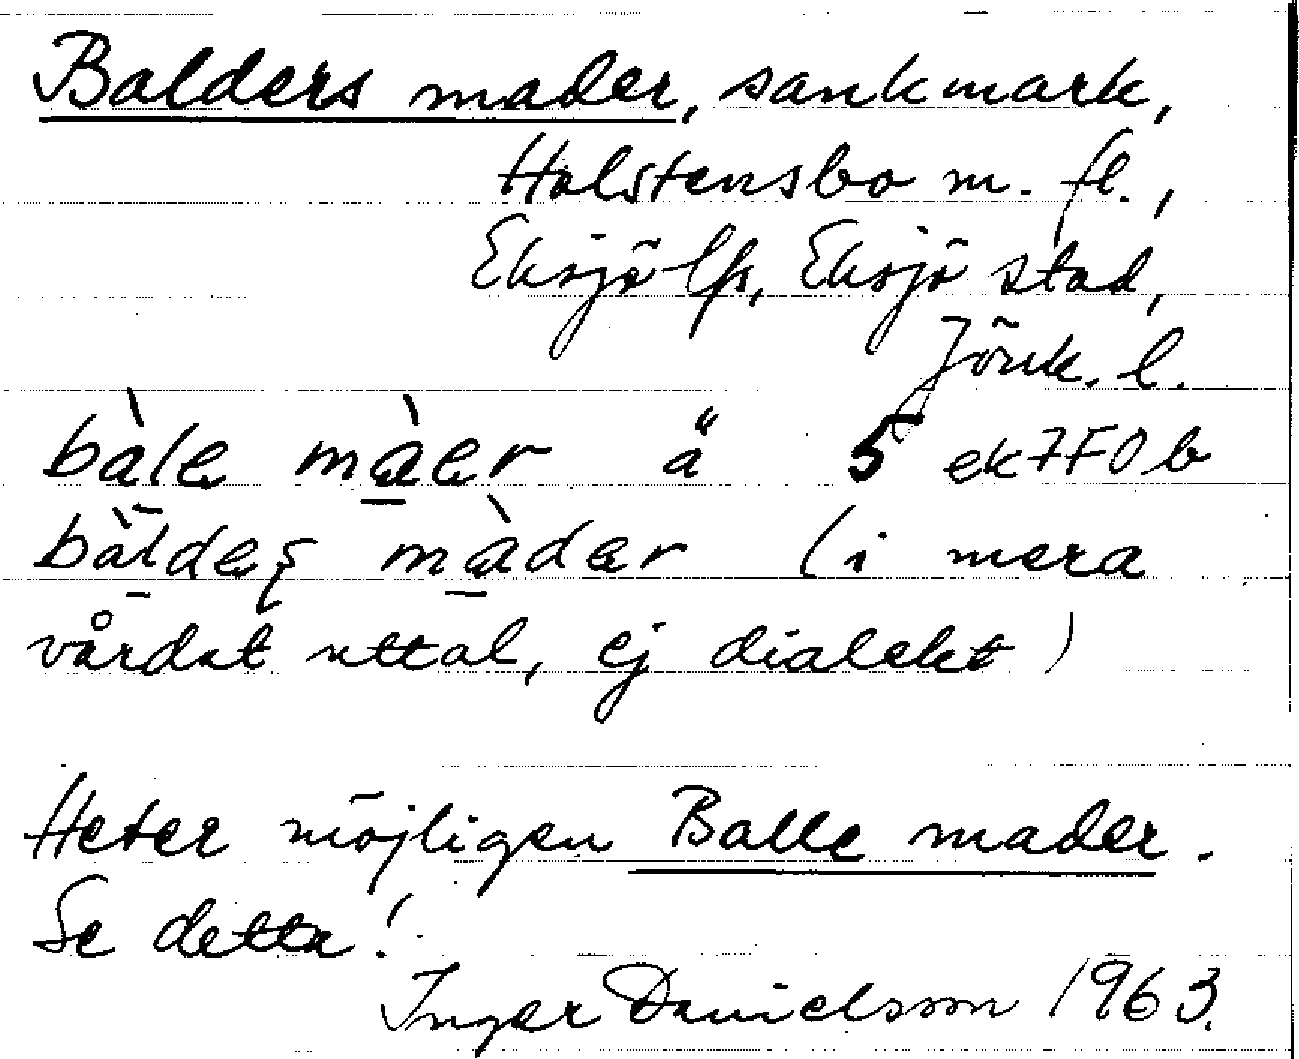 Balders mader, sankmark,
Holstensbo m. fl.,
Eksjö lfs, Eksjö stad,
Jönk. l.
bàle màer ä 5 ek7F0b
bàldeș màder (i mera
vårdat uttal, ej dialekt)
Heter möjligen Balle mader.
Se detta!
Inger Danielsson 1963.